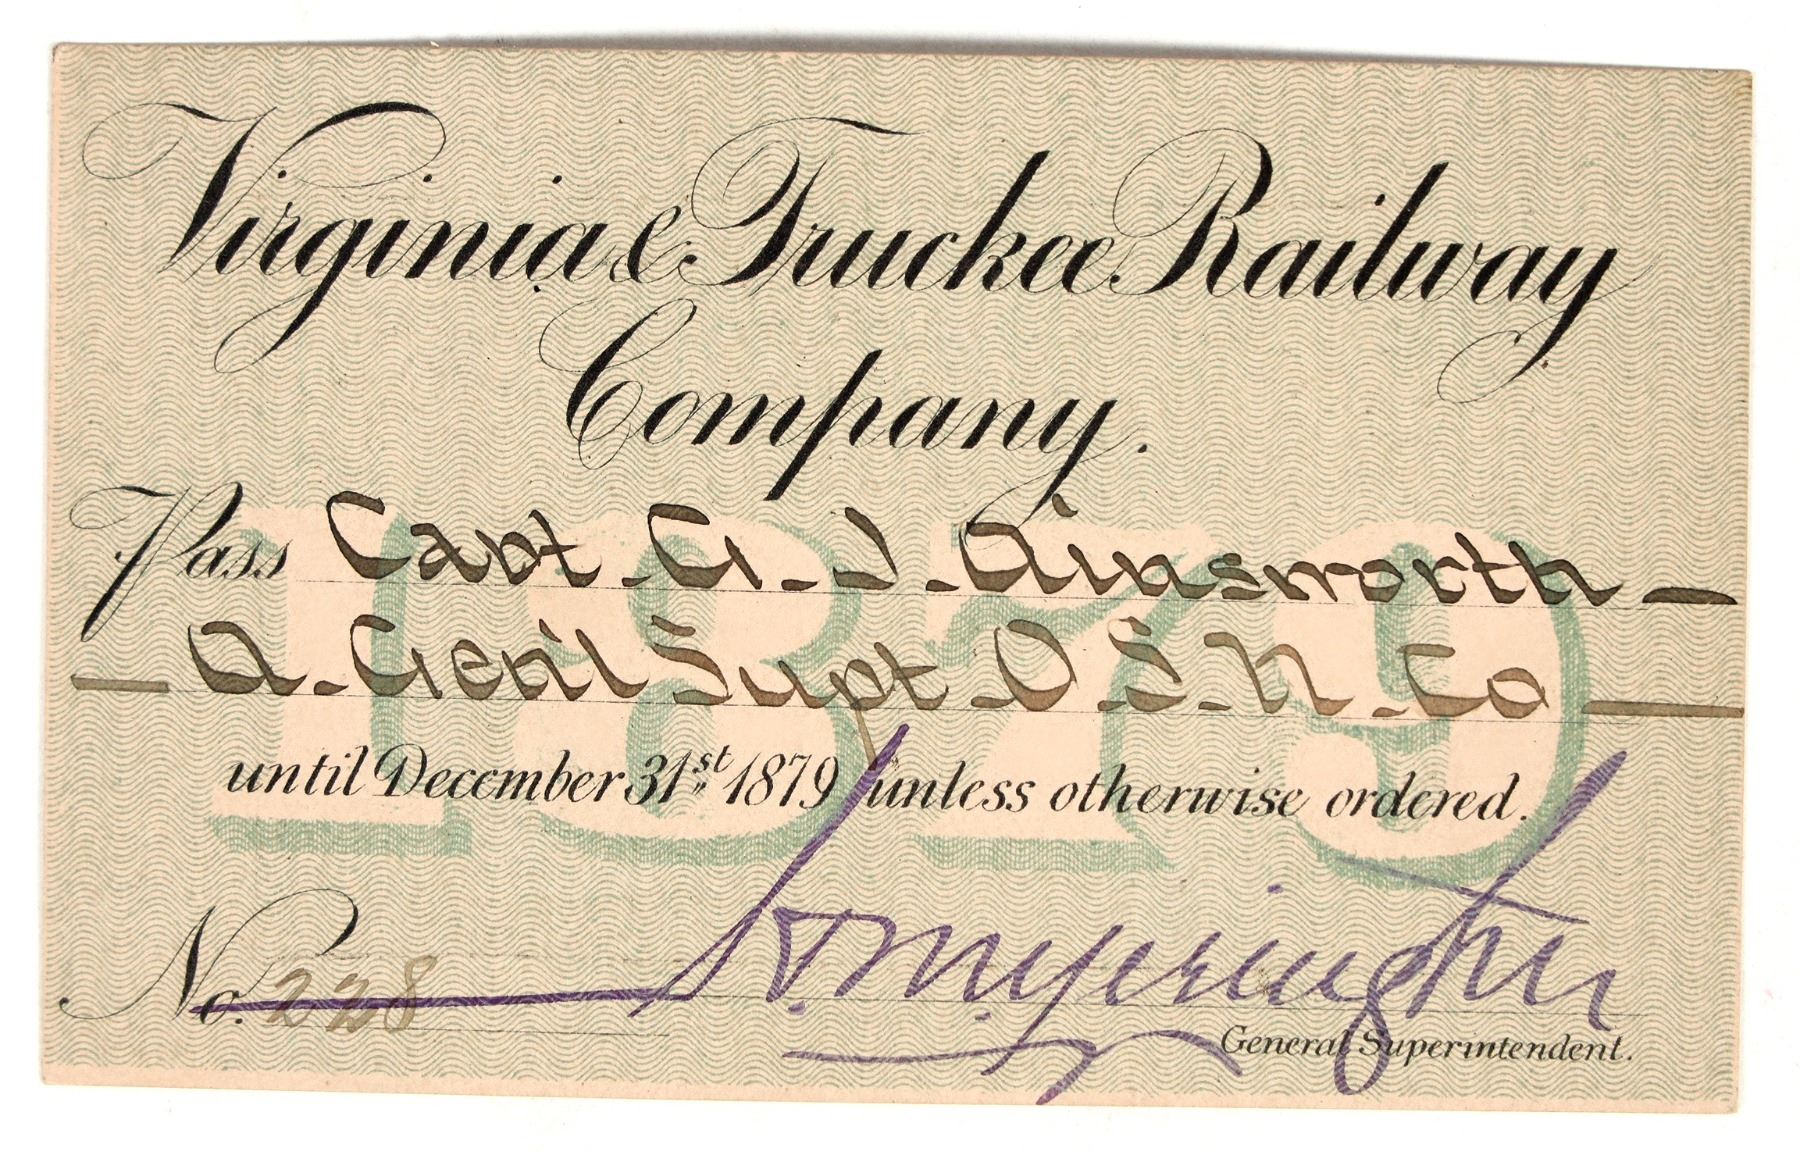 Virginia & Truckee Railway
Company.
Pass Capt. G. J. Ainsworth
A. Gen'l Supt. O. S. N. Co
until December 31st 1879 unless otherwise ordered.
No. 228 H. M. Yerington
General Superintendent.
1879